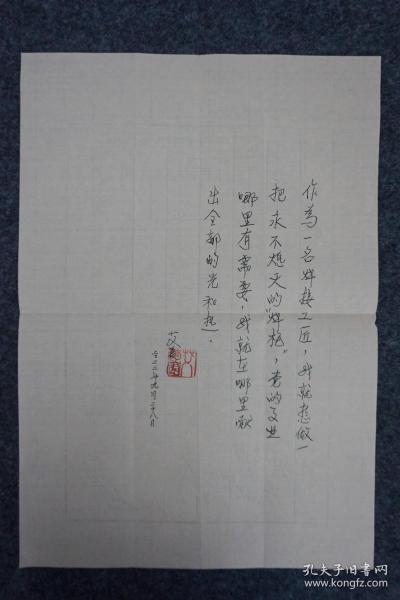 作为一名焊接工匠,我就想做一
把永不熄灭的“焊枪”,党的事业
哪里有需要,我就在哪里献
出全部的光和热。
艾爱国
二〇二二年九月二十八日
孔夫子旧书网
www.kongfz.com